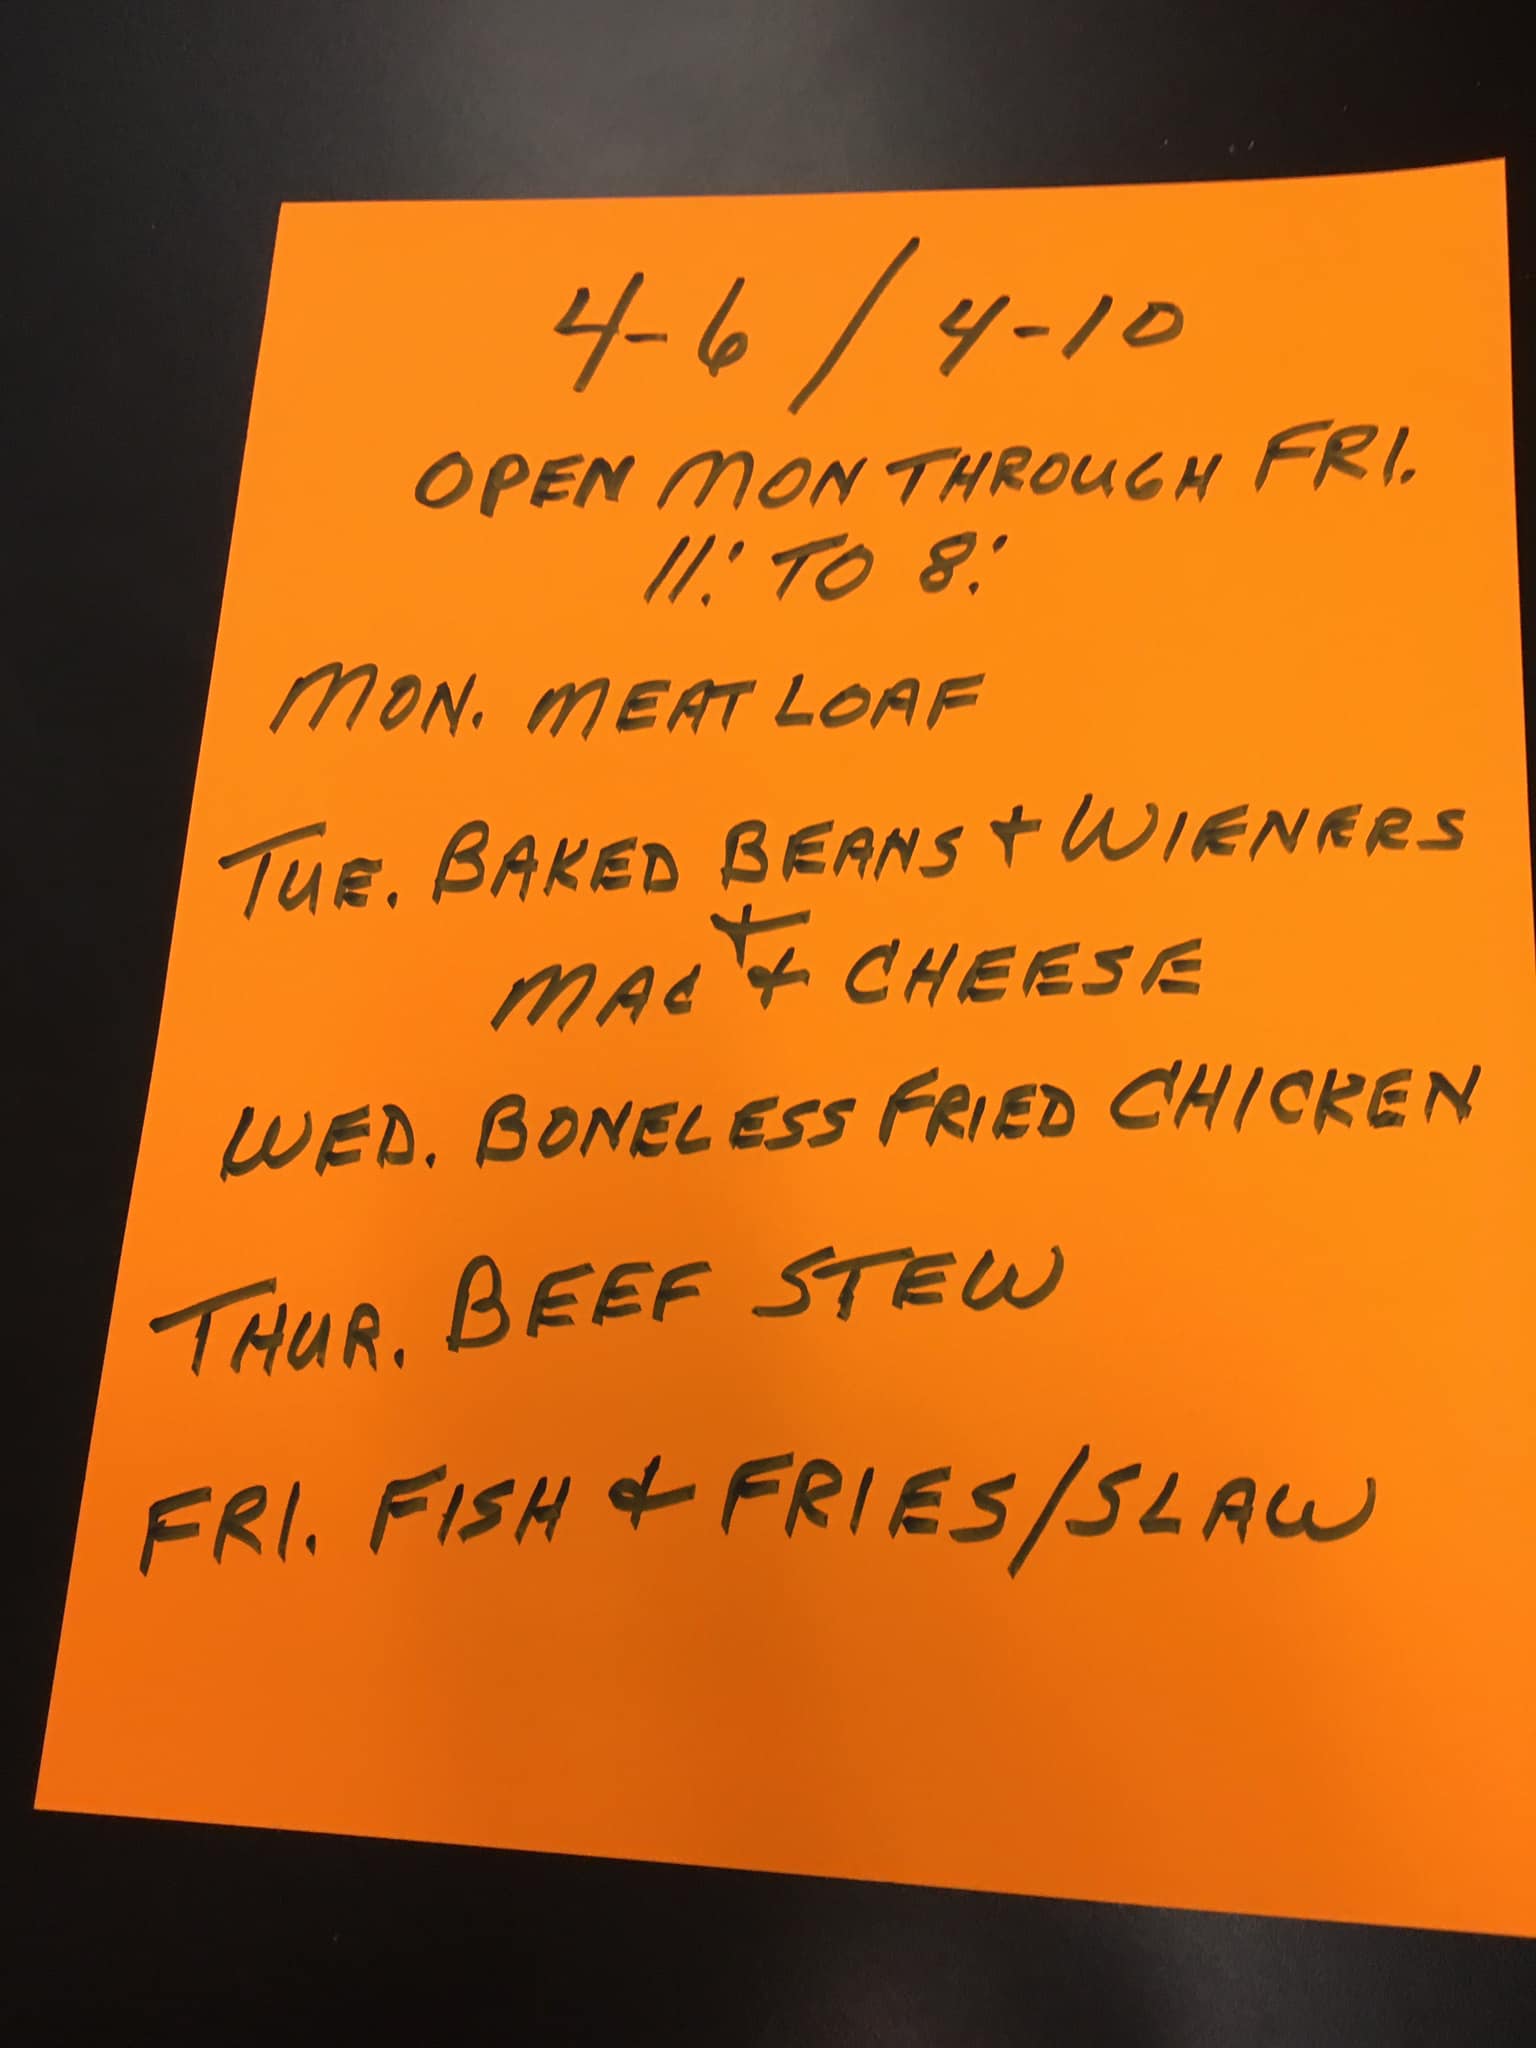 4-6 / 4-10
OPEN MON THROUGH FRI.
11: TO 8:
MON. MEAT LOAF
TUE. BAKED BEANS + WIENERS
+
MAC & CHEESE
WED. BONELESS FRIED CHICKEN
THUR. BEEF STEW
FRI. FISH & FRIES/SLAW